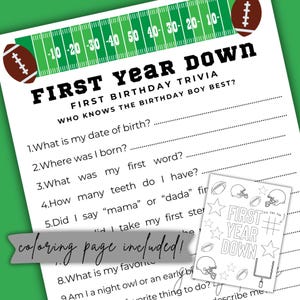 -10 -20 -30 -40 50 40- 30- 20- 10-
FIRST YEAR DOWN
FIRST BIRTHDAY TRIVIA
WHO KNOWS THE BIRTHDAY BOY BEST?
1.What is my date of birth?
2.Where was I born?
3.What was my first word?
4.How many teeth do I have?
5.Did I say “mama” or “dada” fir
I take my first ste
coloring page included!
8.What is my favorite
9.Am I a night owl or an early b
rite thing to do?
FIRST
YEAR
DOWN